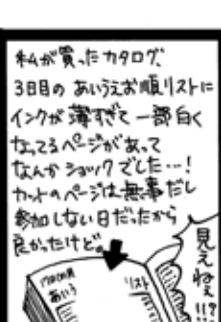 私が買ったカタログ、
3日目の あいうえお順リストに
インクが薄すぎて一部白く
なってるページがあって
なんかショックでした…!
カットのページは無事だし
参加しない日だったから
良かったけど。
見えねぇ!!?
あいう
リスト